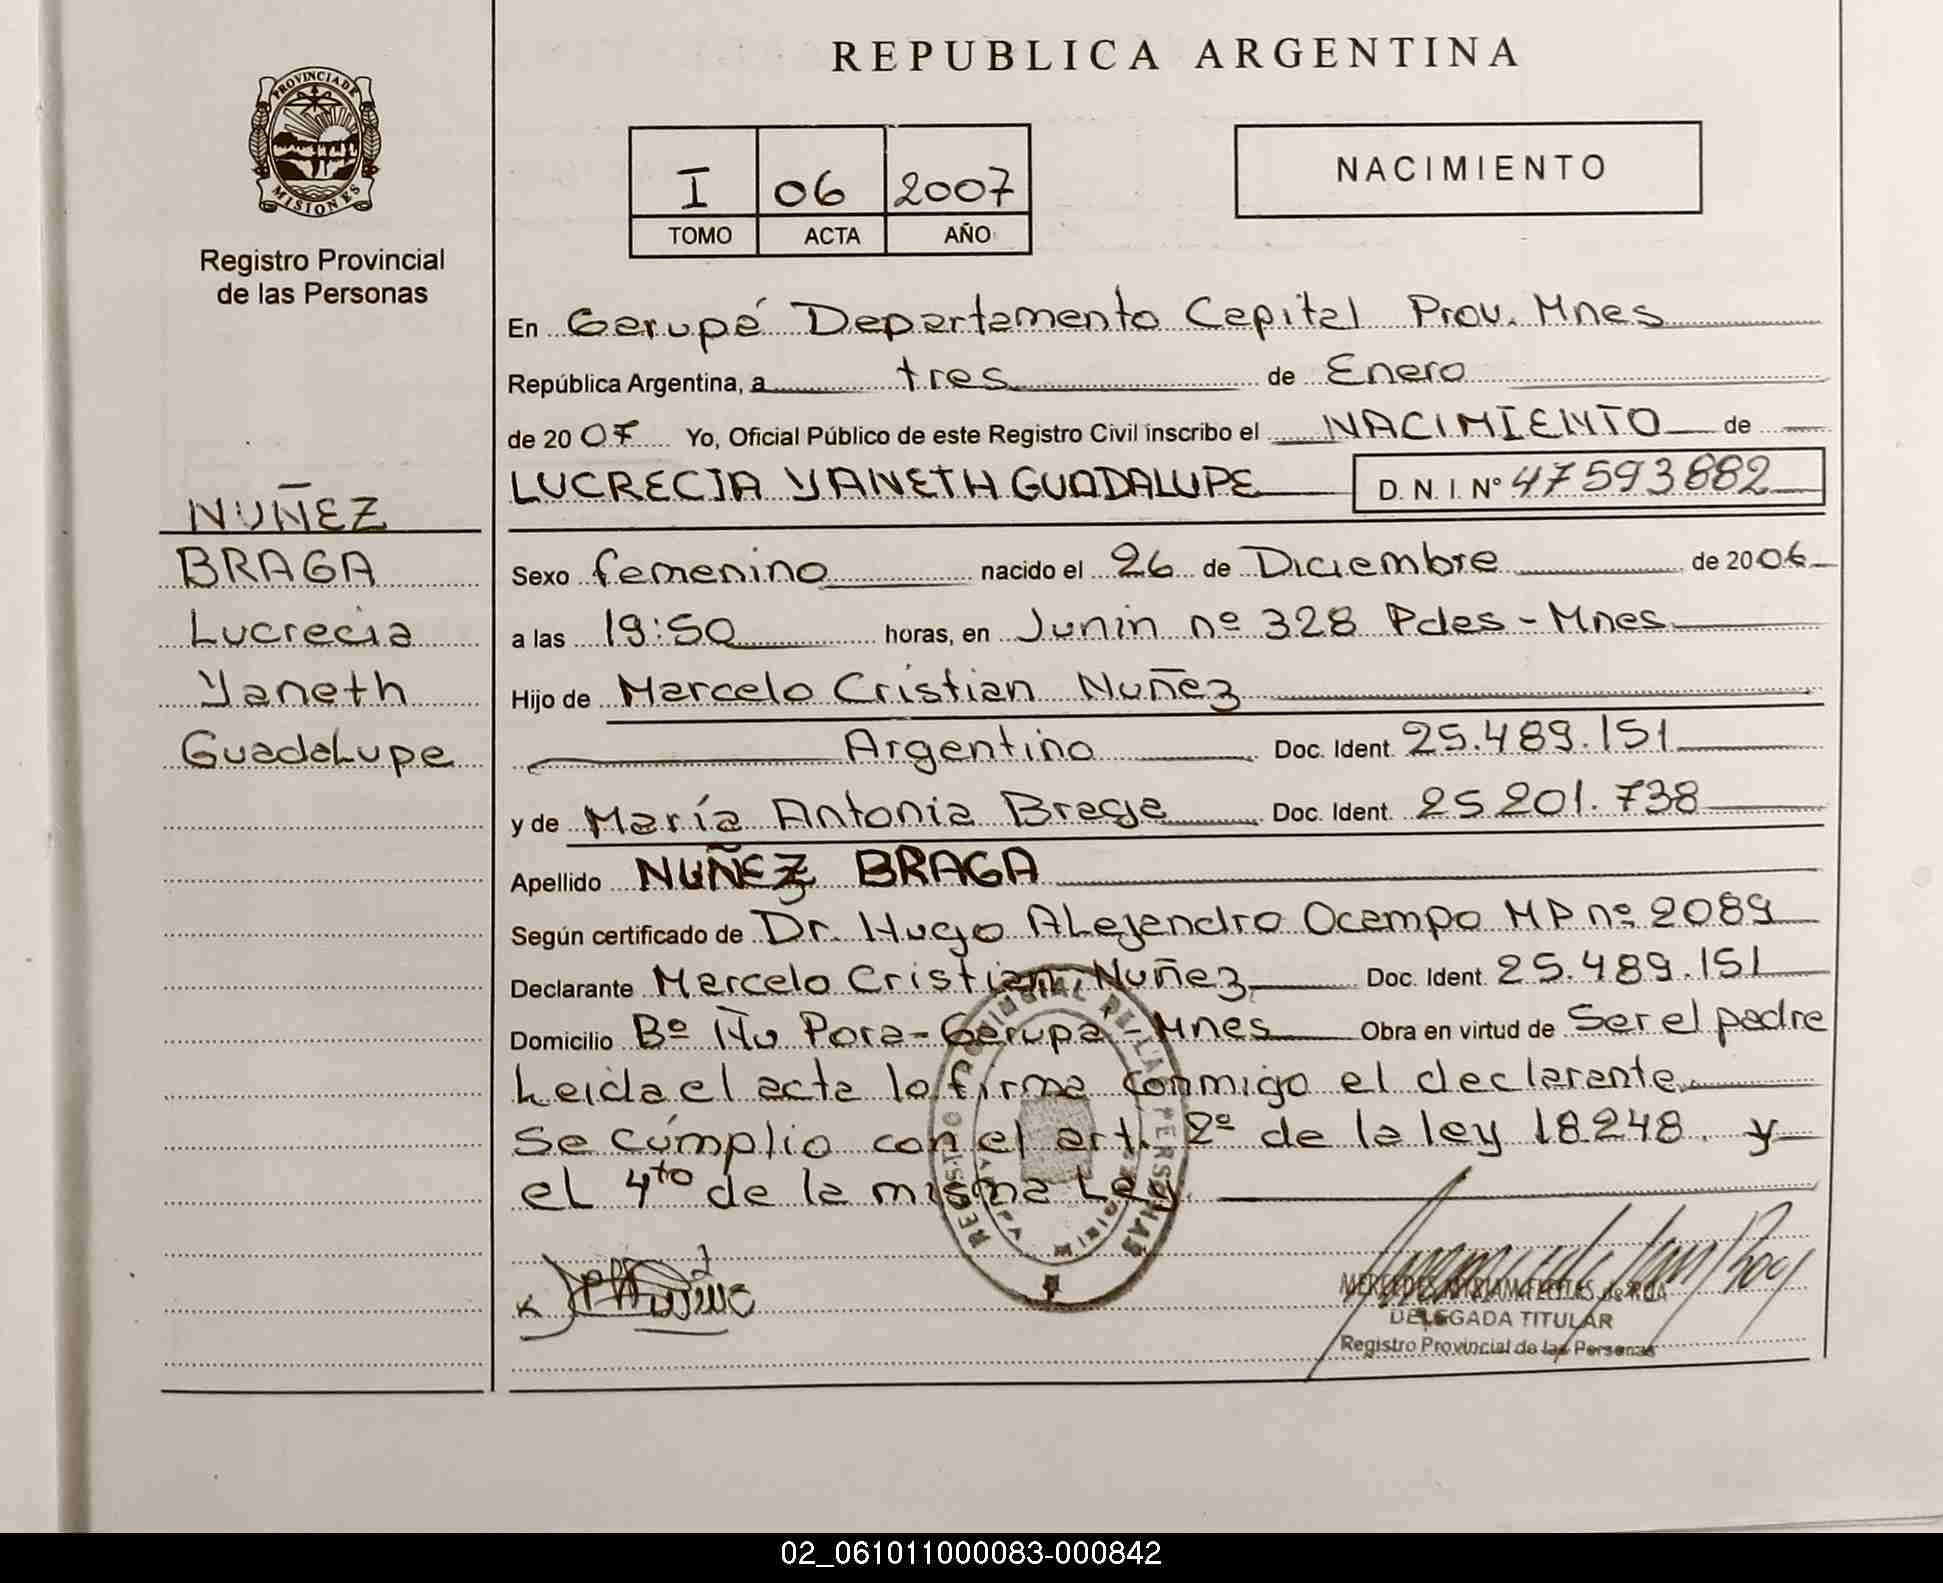 REPUBLICA ARGENTINA
PROVINCIA DE
MISIONES
Registro Provincial
de las Personas
I 06 2007
TOMO ACTA AÑO
NACIMIENTO
En Garupá Departamento Capital Prov. Mnes
República Argentina, a tres de Enero
de 2007 Yo, Oficial Público de este Registro Civil inscribo el NACIMIENTO de
LUCRECIA YANETH GUADALUPE D. N. I. Nº 47593882
NUÑEZ
BRAGA
Lucrecia
Yaneth
Guadalupe
Sexo femenino nacido el 26 de Diciembre de 2006
a las 19:50 horas, en Junin nº 328 Pdas - Mnes
Hijo de Marcelo Cristian Nuñez
Argentino Doc. Ident. 25.489.151
y de María Antonia Braga Doc. Ident. 25201.738
Apellido NUÑEZ BRAGA
Según certificado de Dr. Hugo Alejandro Ocampo MP nº 2089
Declarante Marcelo Cristian Nuñez Doc. Ident. 25.489.151
Domicilio Bº Ñu Pora - Garupa - Mnes Obra en virtud de Ser el padre
Leida el acta lo firma conmigo el declarante
Se cúmplio con el art. 2º de la ley 18248 y
el 4to de la misma Ley.
REGISTRO PROVINCIAL DE LAS PERSONAS
MERCEDES MYRIAM FLEITAS de ROA
DELEGADA TITULAR
Registro Provincial de las Personas
02_061011000083-000842